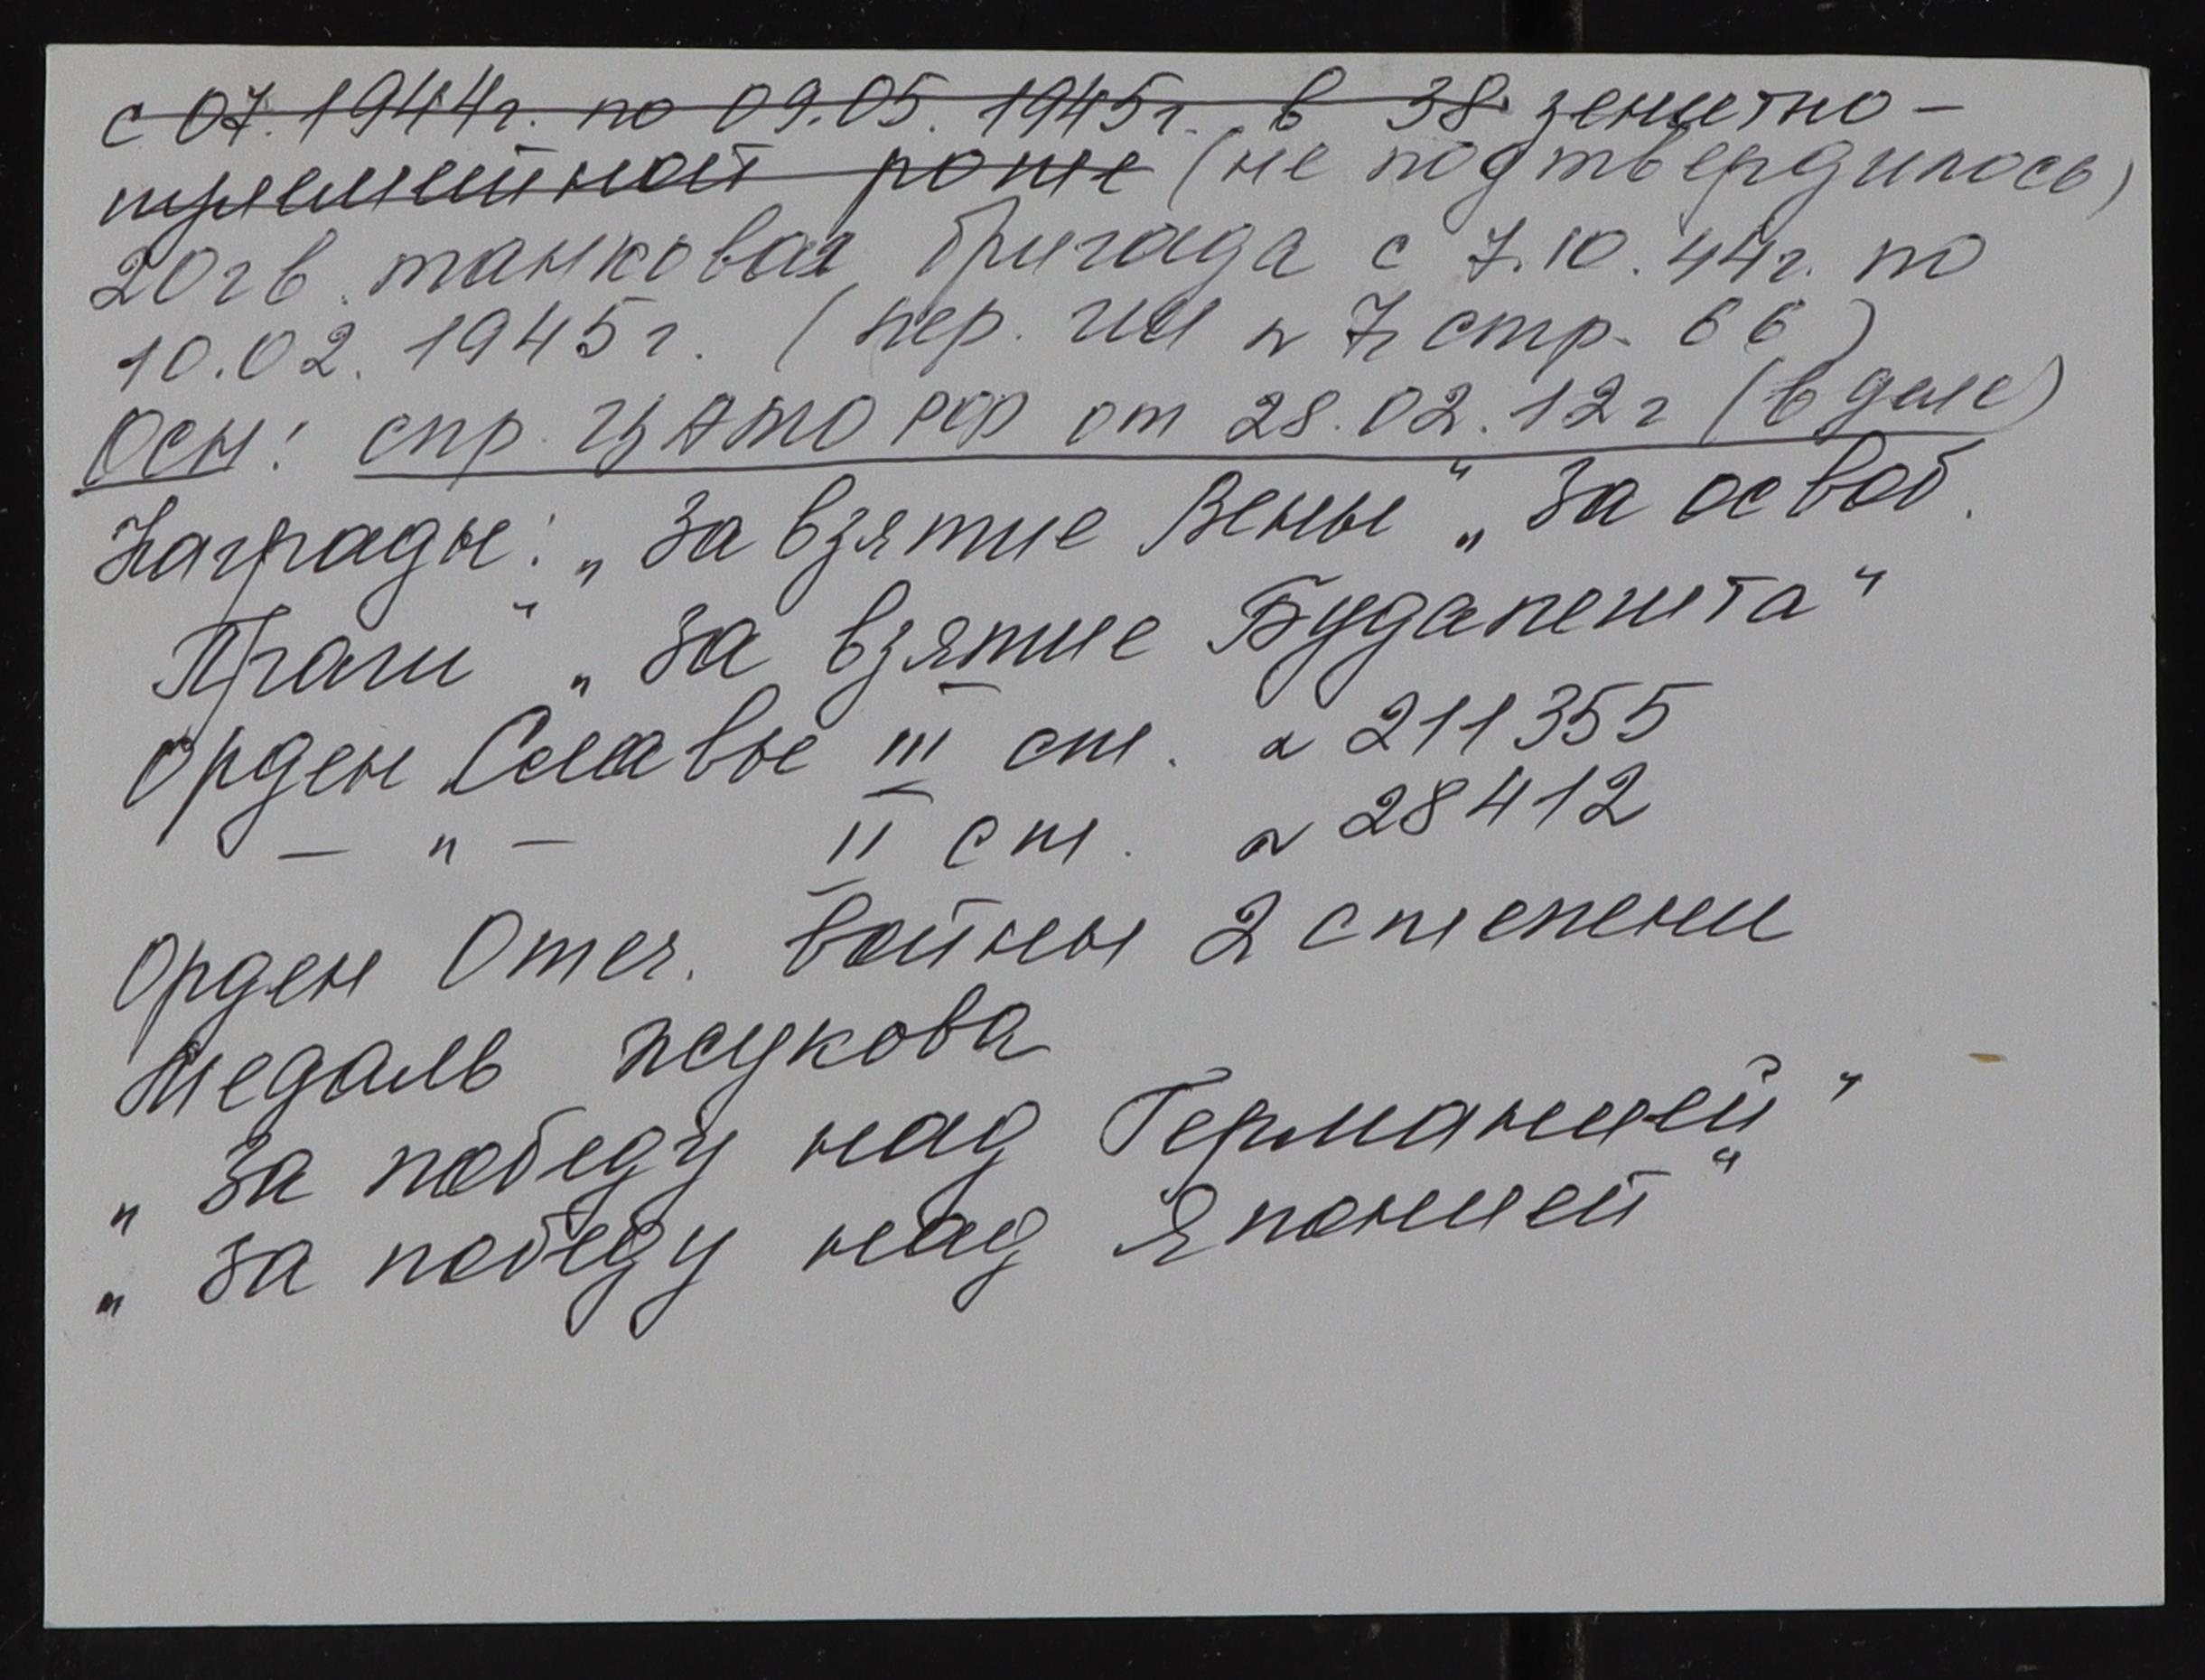 с 07. 1944г. по 09.05. 1945г. в 38 зенитно-
пулемётной роте (не подтвердилось)
20 гв. танковая бригада с 7.10.44г. по
10.02. 1945г. (пер. ИИ № 7, стр. 66)
Осн: спр. ЦАМО РФ от 28.02.12г (в деле)
Награды: „За взятие Вены" „За освоб.
Праги" „За взятие Будапешта"
Орден Славы III ст. № 211355
— " — II ст. № 28412
Орден Отеч. войны 2 степени
Медаль Жукова
„За победу над Германией"
„За победу над Японией"